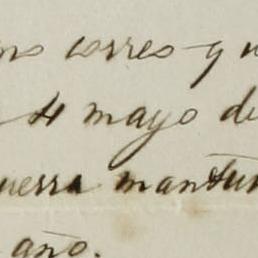 mo correo y
4 mayo de
guerra mantu
año.